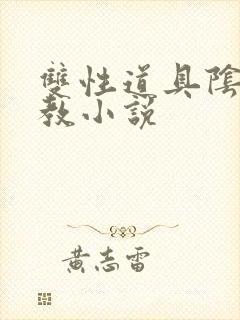 雙性道具陰
教小說
黃志雷